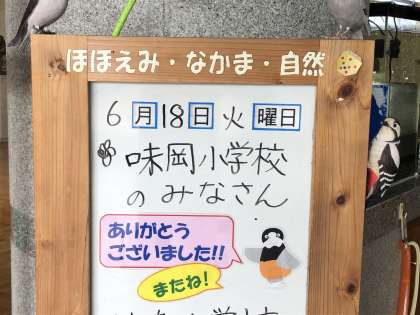 ほほえみ・なかま・自然
6月18日火曜日
味岡小学校
のみなさん
ありがとう
ございました!!
またね!